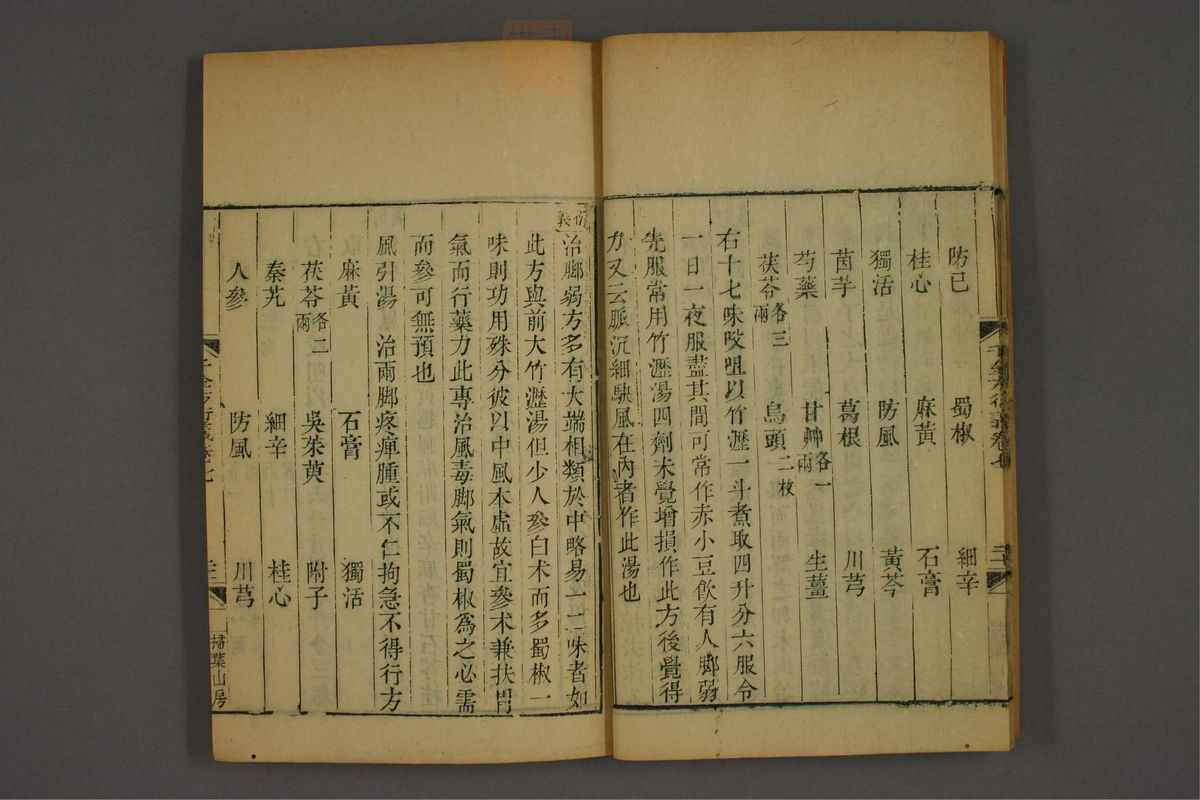 防已 蜀椒 細辛
桂心 麻黃 石膏
獨活 防風 黃芩
茵芋 葛根 川芎
芍藥 甘艸各一兩 生薑
茯苓各三兩 烏頭二枚
右十七味㕮咀以竹瀝一斗煮取四升分六服令
一日一夜服盡其間可常作赤小豆飲有人腳弱
先服常用竹瀝湯四劑未覺增損作此方後覺得
力又云脈沉細駃風在內者作此湯也
治腳弱方多有大端相類於中略易一二味者如
此方與前大竹瀝湯但少人參白术而多蜀椒一
味則功用殊分彼以中風本虛故宜參术兼扶胃
氣而行藥力此專治風毒腳氣則蜀椒為之必需
而參可無預也
風引湯 治兩腳疼痺腫或不仁拘急不得行方
麻黃 石膏 獨活
茯苓各二兩 吳茱萸 附子
秦艽 細辛 桂心
人參 防風 川芎
千金方衍義卷七
掃葉山房